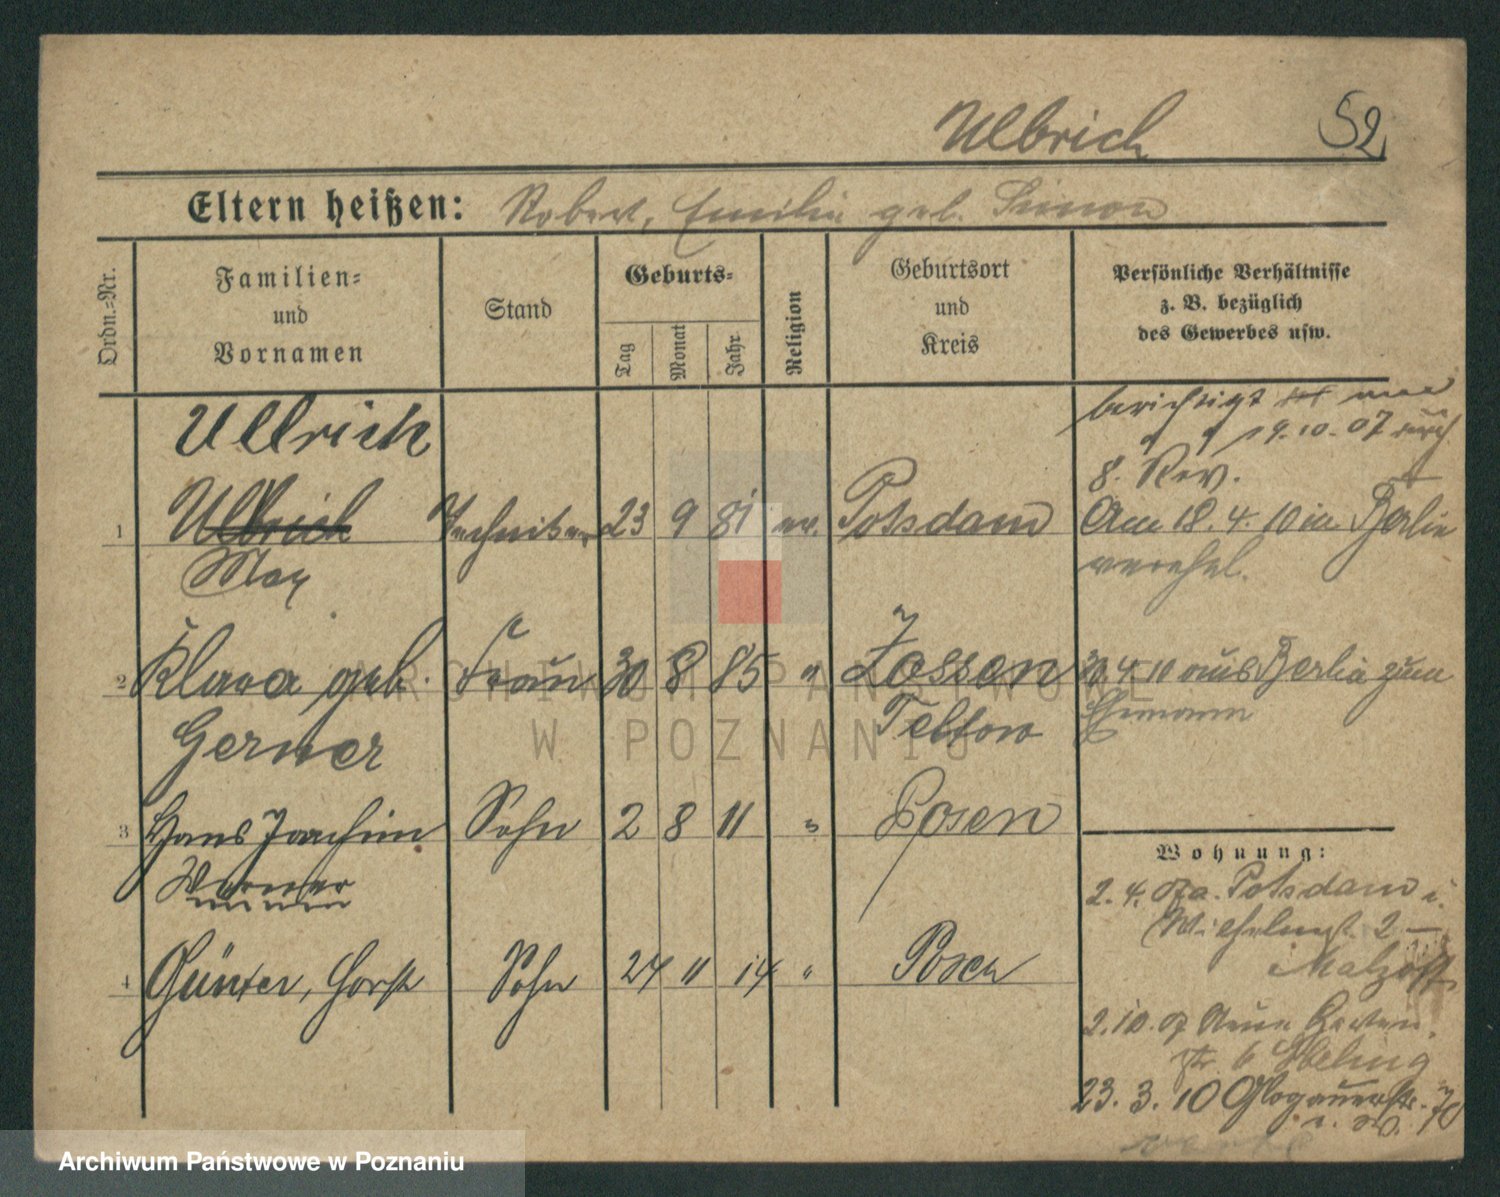 Ulbrich
52
Eltern heißen: Robert, Emilie geb. Simon
Ordn.=Nr.
Familien=
und
Vornamen
Stand
Geburts=
Tag
Monat
Jahr
Religion
Geburtsort
und
Kreis
Persönliche Verhältnisse
z. B. bezüglich
des Gewerbes usw.
Ullrich
berichtigt
19.10.07 durch
8. Rev.
1 Ulbrich Techniker 23 9 81 ev. Potsdam Am 18.4.10 in Berlin
Max
verehel.
2 Klara geb. Frau 30 8 85 " Zossen 4. 10 aus Berlin zum
Gerner Teltow Ehemann
3 Hans Joachim Sohn 2 8 11 " Posen
Werner
Wohnung:
2.4.07 a. Potsdam i.
2
4 Günter, Horst Sohn 24 11 14 " Posen
2.10.07 Neue Garten
str. 6
23.3.10 Glogauerstr. 70
ARCHIWUM PAŃSTWOWE
W POZNANIU
Archiwum Państwowe w Poznaniu